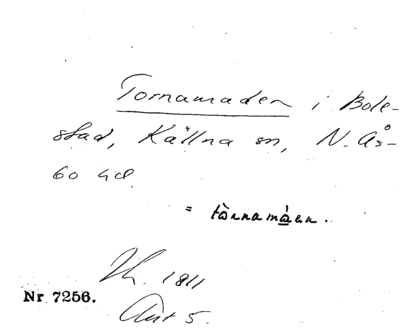 Tornamaden i Bole-
stad, Källna sn, N. Ås-
bo hd.
= tòrnamàen.
Nr 7256.
1811
Akt 5.